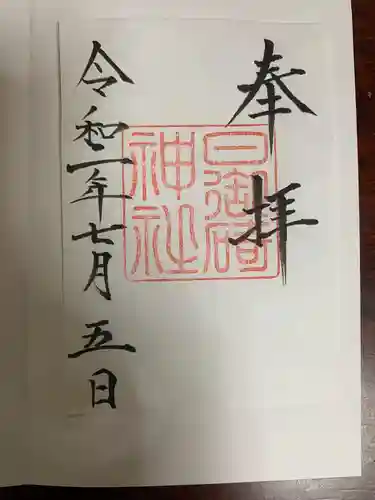 奉拝
日御碕
神社
令和一年七月五日